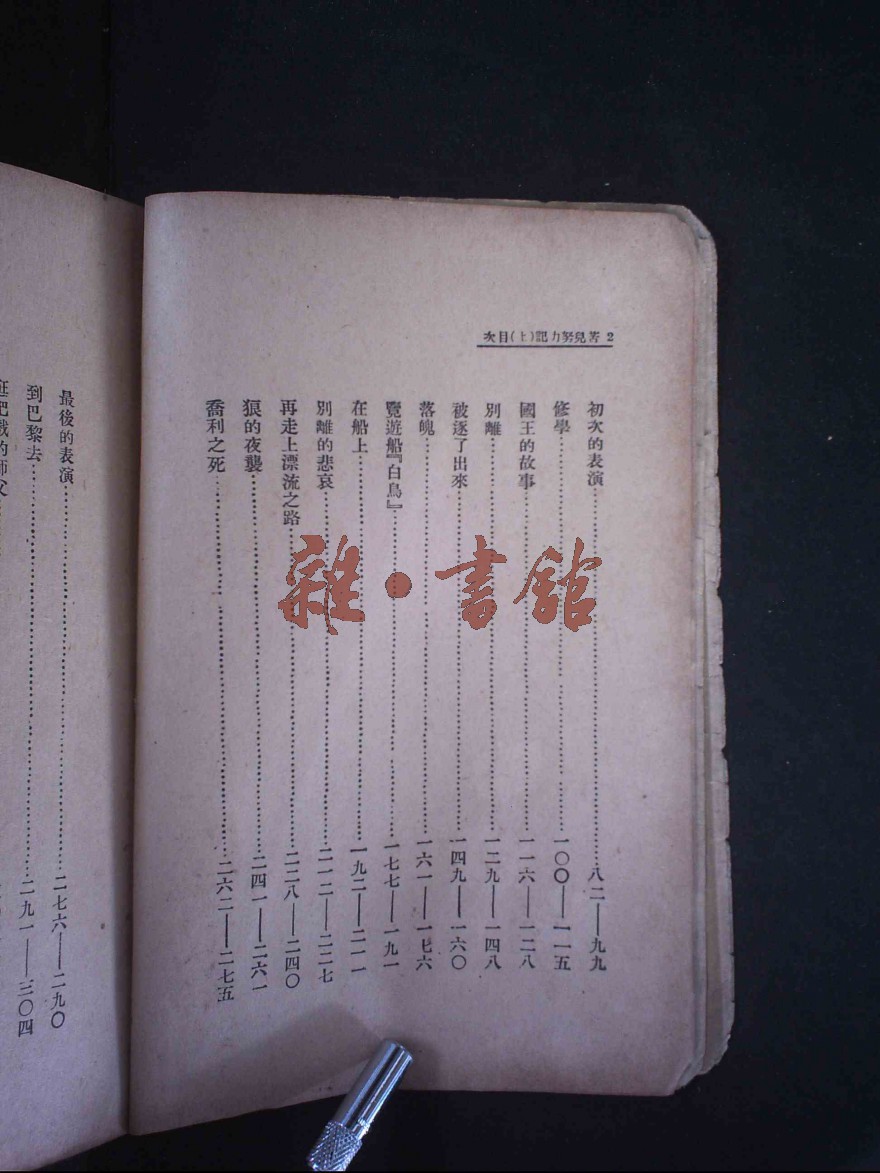 2 苦兒努力記(上)目次
初次的表演……八二——九九
修學……一〇〇——一一五
國王的故事……一一六——一二八
別離……一二九——一四八
被逐了出來……一四九——一六〇
落魄……一六一——一七六
覽遊船『白鳥』……一七七——一九一
在船上……一九二——二一一
別離的悲哀……二一二——二二七
再走上漂流之路……二二八——二四〇
狼的夜襲……二四一——二六一
喬利之死……二六二——二七五
最後的表演……二七六——二九〇
到巴黎去……二九一——三〇四
的師父
雜·書館